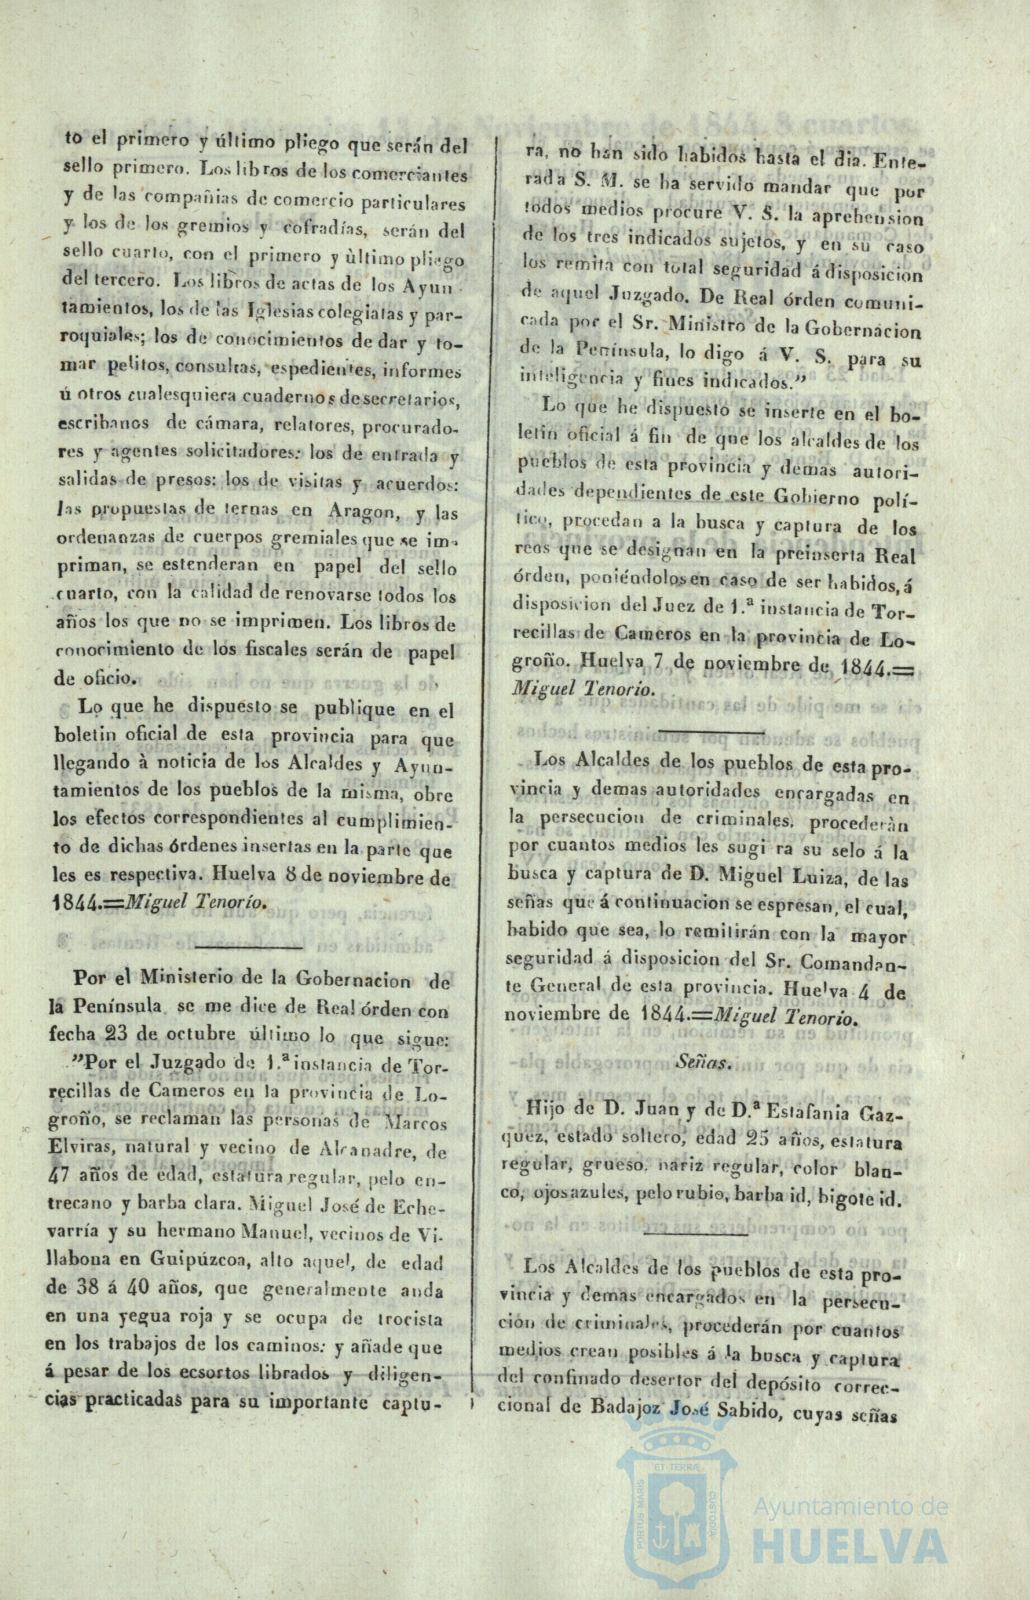 to el primero y último pliego que serán del
sello primero. Los libros de los comerciantes
y de las compañias de comercio particulares
y los de los gremios y cofradías, serán del
sello cuarto, con el primero y ùltimo pliego
del tercero. Los libros de actas de los Ayun
tamientos, los de las Iglesias colegiatas y par-
roquiales; los de conocimientos de dar y to-
mar pelitos, consultas, espedientes, informes
ú otros cualesquiera cuadernos de secretarios,
escribanos de cámara, relatores, procurado-
res y agentes solicitadores: los de entrada y
salidas de presos: los de visitas y acuerdos:
las propuestas de ternas en Aragon, y las
ordenanzas de cuerpos gremiales que se im-
priman, se estenderan en papel del sello
cuarto, con la calidad de renovarse todos los
años los que no se imprimen. Los libros de
conocimiento de los fiscales serán de papel
de oficio.
Lo que he dispuesto se publique en el
boletin oficial de esta provincia para que
llegando à noticia de los Alcaldes y Ayun-
tamientos de los pueblos de la misma, obre
los efectos correspondientes al cumplimien-
to de dichas órdenes insertas en la parte que
les es respectiva. Huelva 8 de noviembre de
1844.=Miguel Tenorio.
Por el Ministerio de la Gobernacion de
la Península se me dice de Real órden con
fecha 23 de octubre último lo que sigue:
"Por el Juzgado de 1.ª instancia de Tor-
recillas de Cameros en la provincia de Lo-
groño, se reclaman las personas de Marcos
Elviras, natural y vecino de Alcanadre, de
47 años de edad, estatura regular, pelo en-
trecano y barba clara. Miguel José de Eche-
varría y su hermano Manuel, vecinos de Vi-
llabona en Guipúzcoa, alto aquel, de edad
de 38 á 40 años, que generalmente anda
en una yegua roja y se ocupa de trocista
en los trabajos de los caminos: y añade que
á pesar de los ecsortos librados y diligen-
cias practicadas para su importante captu-
ra, no han sido habidos hasta el dia. Ente-
rada S. M. se ha servido mandar que por
todos medios procure V. S. la aprehension
de los tres indicados sujetos, y en su caso
los remita con total seguridad á disposicion
de aquel Juzgado. De Real órden comuni-
cada por el Sr. Ministro de la Gobernacion
de la Península, lo digo á V. S. para su
inteligencia y fines indicados."
Lo que he dispuesto se inserte en el bo-
letin oficial á fin de que los alcaldes de los
pueblos de esta provincia y demas autori-
dades dependientes de este Gobierno polí-
tico, procedan a la busca y captura de los
reos que se designan en la preinserta Real
órden, poniéndolos en caso de ser habidos, á
disposicion del Juez de 1.ª instancia de Tor-
recillas de Cameros en la provincia de Lo-
groño. Huelva 7 de noviembre de 1844.=
Miguel Tenorio.
Los Alcaldes de los pueblos de esta pro-
vincia y demas autoridades encargadas en
la persecucion de criminales, procederàn
por cuantos medios les sugi ra su selo á la
busca y captura de D. Miguel Luiza, de las
señas que á continuacion se espresan, el cual,
habido que sea, lo remitirán con la mayor
seguridad á disposicion del Sr. Comandan-
te General de esta provincia. Huelva 4 de
noviembre de 1844.=Miguel Tenorio.
Señas.
Hijo de D. Juan y de D.ª Estafania Gaz-
quez, estado soltero, edad 25 años, estatura
regular, grueso, nariz regular, color blan-
co, ojos azules, pelo rubio, barba id, bigote id.
Los Alcaldes de los pueblos de esta pro-
vincia y demas encargados en la persecu-
cion de criminales, procederán por cuantos
medios crean posibles á la busca y captura
del confinado desertor del depósito correc-
cional de Badajoz José Sabido, cuyas señas
ET TERRÆ
PORTUS MARIS
CUSTODIA
Ayuntamiento de
HUELVA